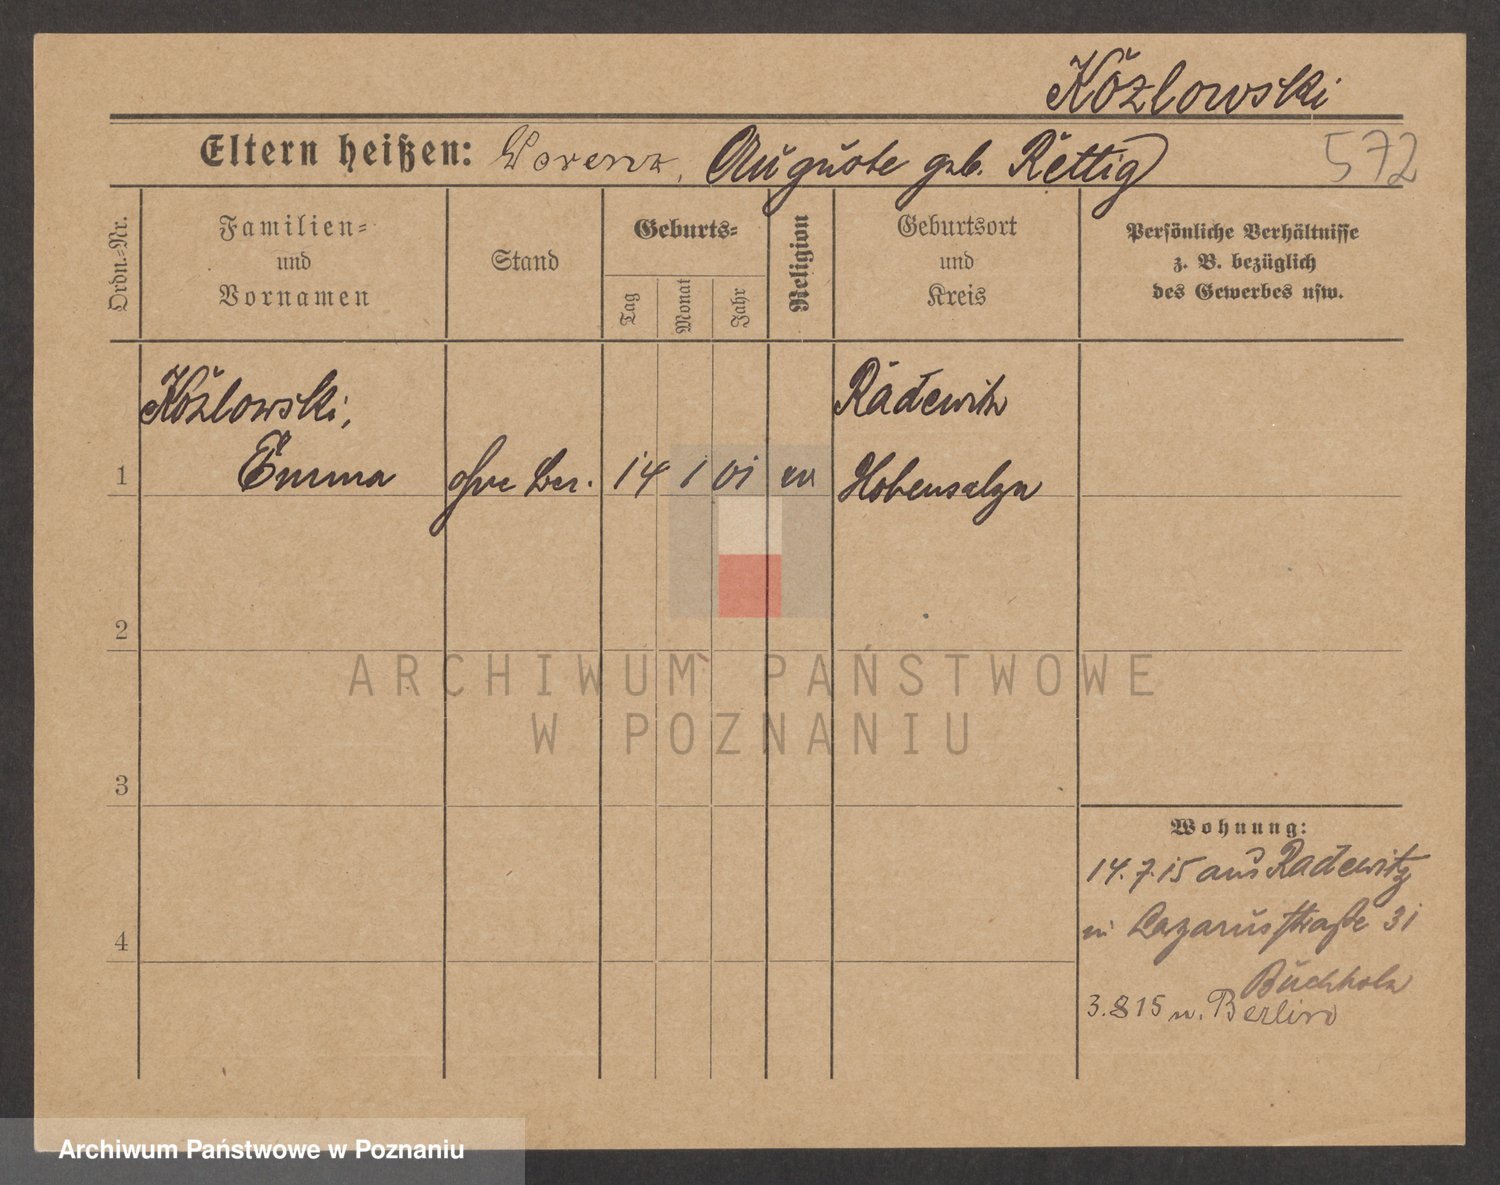 Kozlowski
Eltern heißen: Lorenz, Auguste geb. Rettig
572
Ordn.=Nr.
Familien=
und
Vornamen
Stand
Geburts=
Tag
Monat
Jahr
Religion
Geburtsort
und
Kreis
Persönliche Verhältnisse
z. B. bezüglich
des Gewerbes usw.
Kozlowski,
Emma
1
ohne Ber.
14 1 01
ev
Radewitz
Hohensalza
2
3
4
Wohnung:
14.7.15 aus Radewitz
in Lazarusstraße 31
Buchholz
3.8 15 n. Berlin
ARCHIWUM PAŃSTWOWE
W POZNANIU
Archiwum Państwowe w Poznaniu